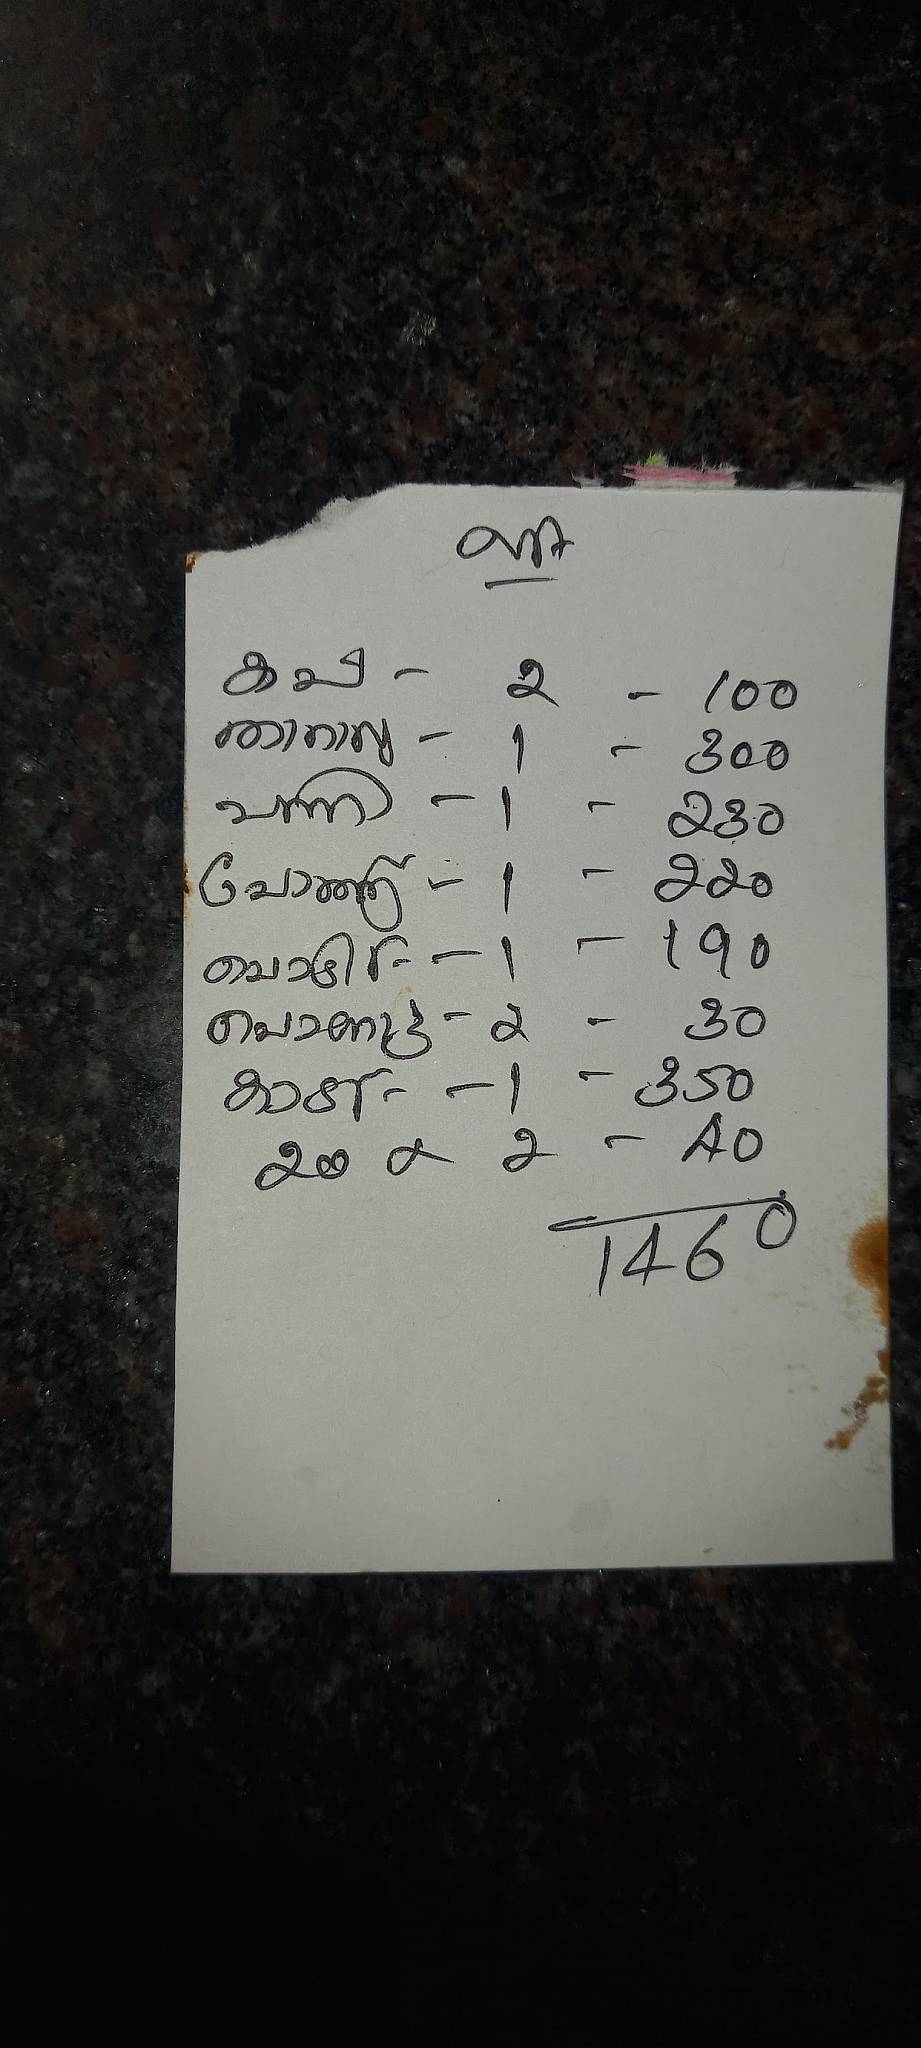 കപ്പ - 2 - 100
താറാവ് - 1 - 300
പന്നി - 1 - 230
പോത്ത് - 1 - 220
ബോട്ടി - 1 - 190
പൊറോട്ട - 2 - 30
കാട - 1 - 350
20 x 2 - 40
1460